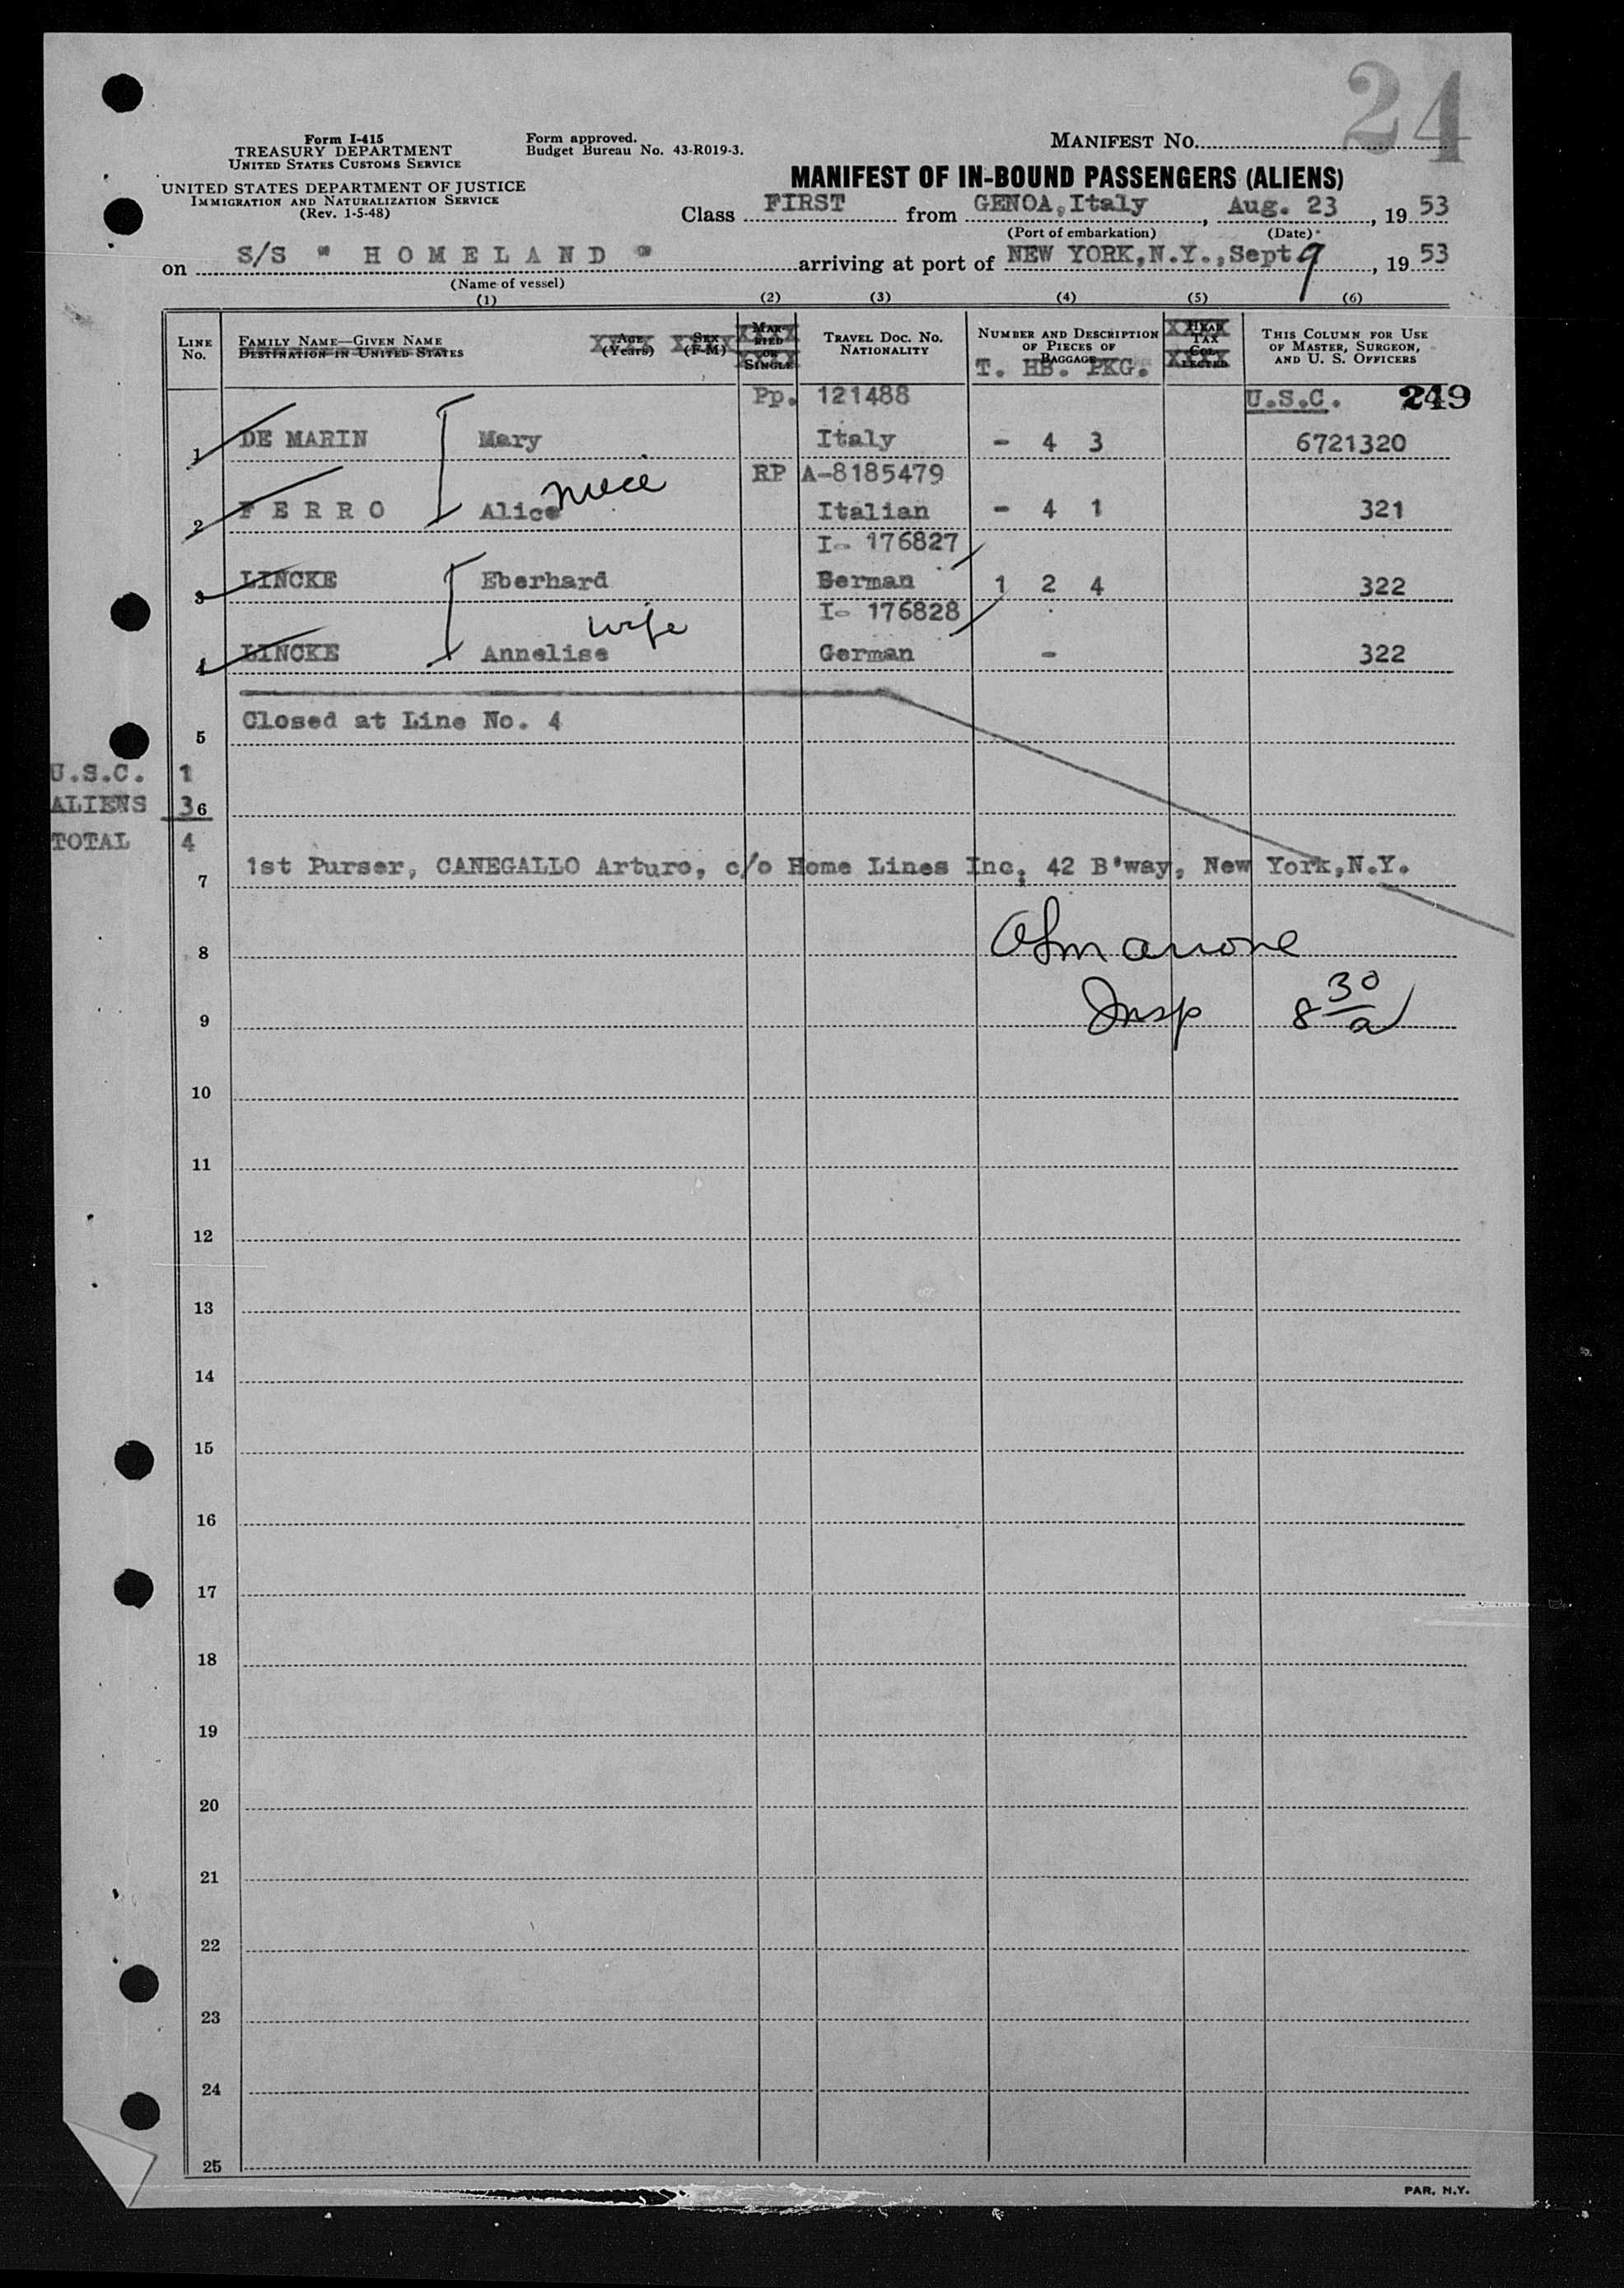 24
Form I-415
TREASURY DEPARTMENT
UNITED STATES CUSTOMS SERVICE
UNITED STATES DEPARTMENT OF JUSTICE
IMMIGRATION AND NATURALIZATION SERVICE
(Rev. 1-5-48)
Form approved.
Budget Bureau No. 43-R019-3.
MANIFEST NO.
MANIFEST OF IN-BOUND PASSENGERS (ALIENS)
Class FIRST from GENOA, Italy, Aug. 23, 1953
(Port of embarkation) (Date)
on S/S " H O M E L A N D " arriving at port of NEW YORK,N.Y.,Sept 9, 1953
(Name of vessel)
(1) (2) (3) (4) (5) (6)
LINE NO.
FAMILY NAME—GIVEN NAME
DESTINATION IN UNITED STATES
AGE (Years)
SEX (F-M)
MARRIED OR SINGLE
TRAVEL DOC. NO.
NATIONALITY
NUMBER AND DESCRIPTION OF PIECES OF BAGGAGE
T. HB. PKG.
HEAD TAX COLLECTED
THIS COLUMN FOR USE OF MASTER, SURGEON, AND U. S. OFFICERS
Pp. 121488 U.S.C. 249
1 DE MARIN Mary Italy - 4 3 6721320
RP A-8185479
2 F E R R O Alice niece Italian - 4 1 321
I- 176827
3 LINCKE Eberhard German 1 2 4 322
I- 176828
4 LINCKE Annelise wife German - 322
5 Closed at Line No. 4
U.S.C. 1
ALIENS 3 6
TOTAL 4
7 1st Purser, CANEGALLO Arturo, c/o Home Lines Inc, 42 B'way, New York,N.Y.
8
9 Insp 8 30 a
10
11
12
13
14
15
16
17
18
19
20
21
22
23
24
25
PAR, N.Y.